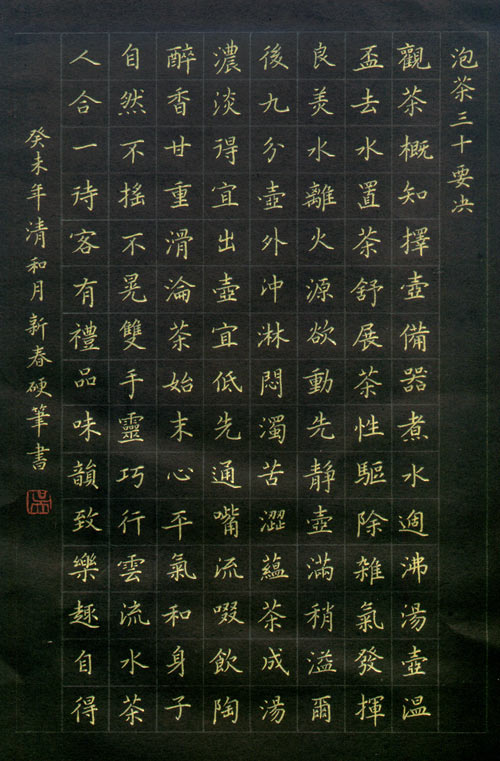 泡茶三十要决
觀茶概知擇壺備器煮水迴沸湯壺温
盃去水置茶舒展茶性驅除雜氣發揮
良羙水離火源欲動先静壺滿稍溢爾
後九分壺外沖淋悶濁苦澀蘊茶成湯
濃淡得宜出壺宜低先通嘴流啜飲陶
醉香甘重滑淪茶始末心平氣和身子
自然不摇不晃雙手靈巧行雲流水茶
人合一待客有禮品味韻致樂趣自得
癸未年清和月新春硬筆書